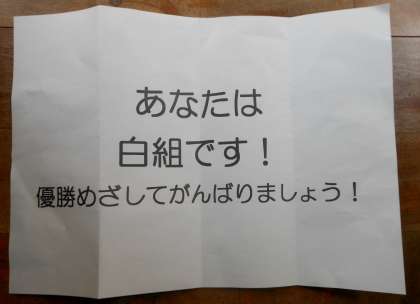 あなたは
白組です！
優勝めざしてがんばりましょう！